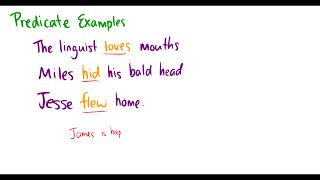 Predicate Examples
The linguist loves mouths
Miles hid his bald head
Jesse flew home.
James is hap